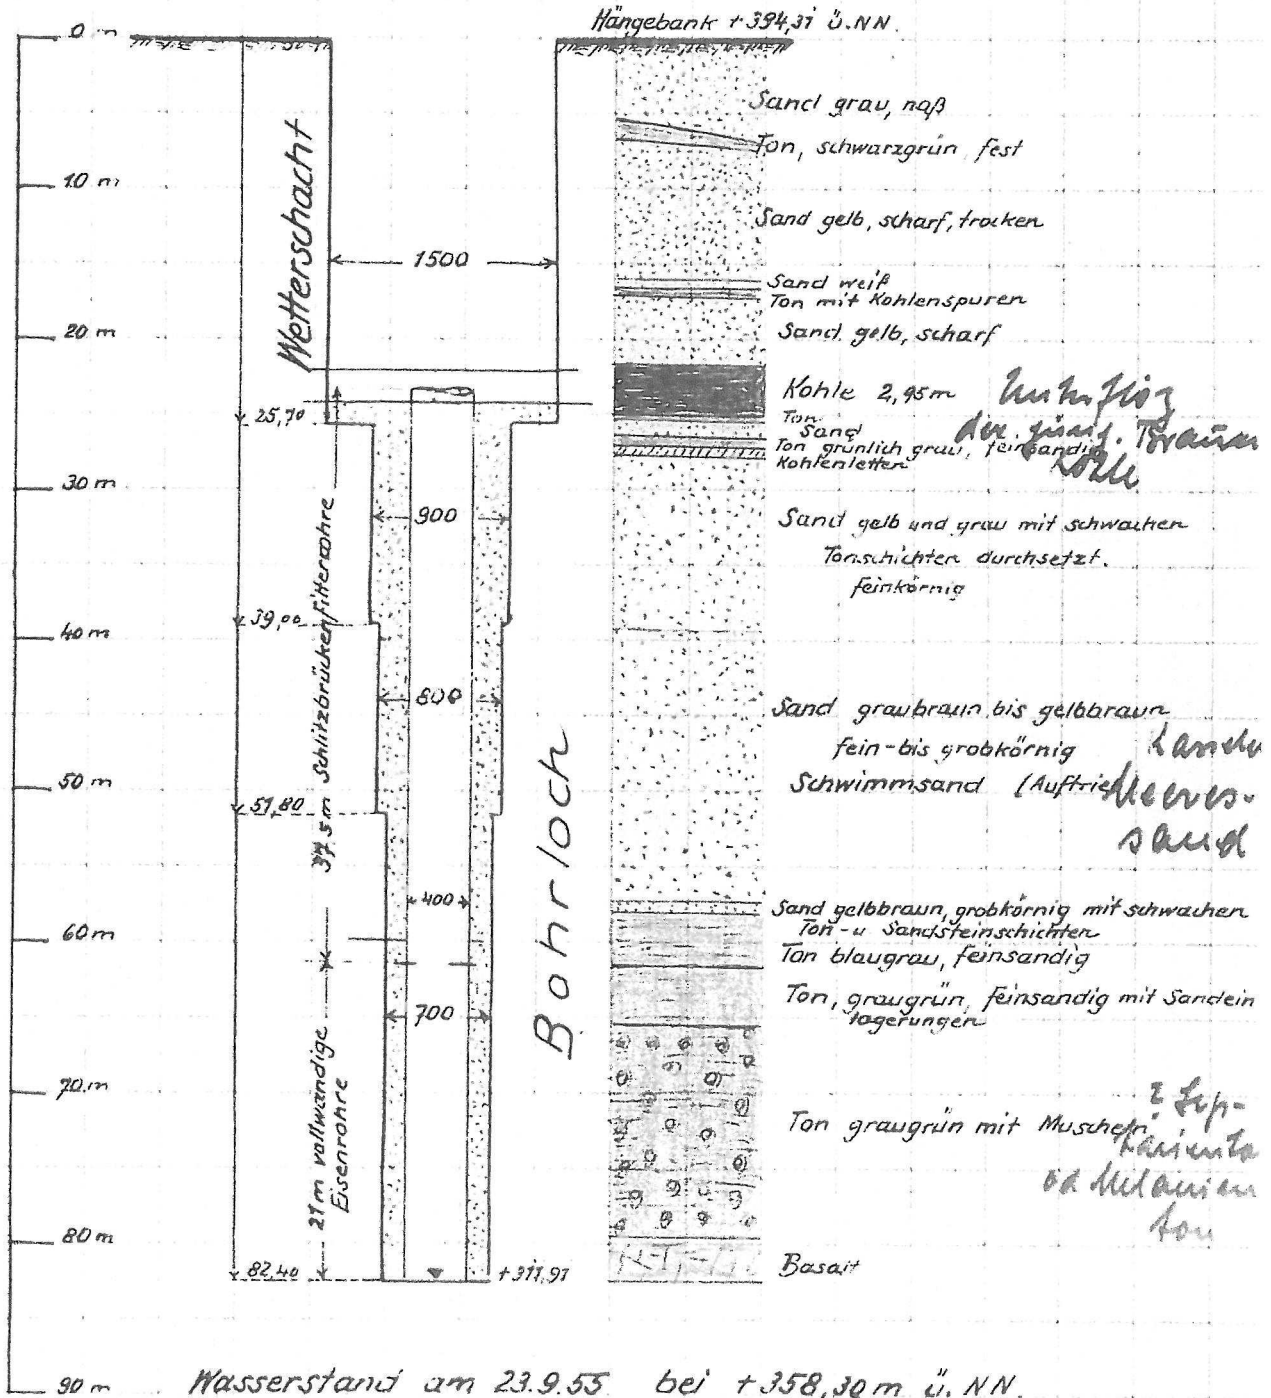 Hängebank + 394,31 ü.NN.
0 m
10 m
20 m
30 m
40 m
50 m
60 m
70 m
80 m
90 m
Wetterschacht
1500
25,70
39,00
51,80
82,40
37,5m Schlitzbrückenfilterrohre
21m vollwandige
Eisenrohre
900
800
400
700
+311,91
Bohrloch
Sand grau, naß
Ton, schwarzgrün fest
Sand gelb, scharf, trocken
Sand weiß
Ton mit Kohlenspuren
Sand gelb, scharf
Kohle 2,95m
der jüng. Braun
kohle
Ton
Sand
Ton grünlich grau, feinsandig
Kohlenletten
Sand gelb und grau mit schwachen
Tonschichten durchsetzt.
feinkörnig
Sand graubraun bis gelbbraun
fein-bis grobkörnig
Schwimmsand
Meeres-
sand
Sand gelbbraun, grobkörnig mit schwachen
Ton-u Sandsteinschichten
Ton blaugrau, feinsandig
Ton, graugrün, feinsandig mit Sandein
lagerungen
Ton graugrün mit Muscheln
? Sep-
tariento
od Melanien
ton
Basalt
Wasserstand am 23.9.55 bei +358,30m ü. NN.